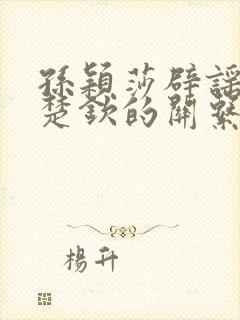 孫穎莎辟謠
楚欽的關繫
楊升